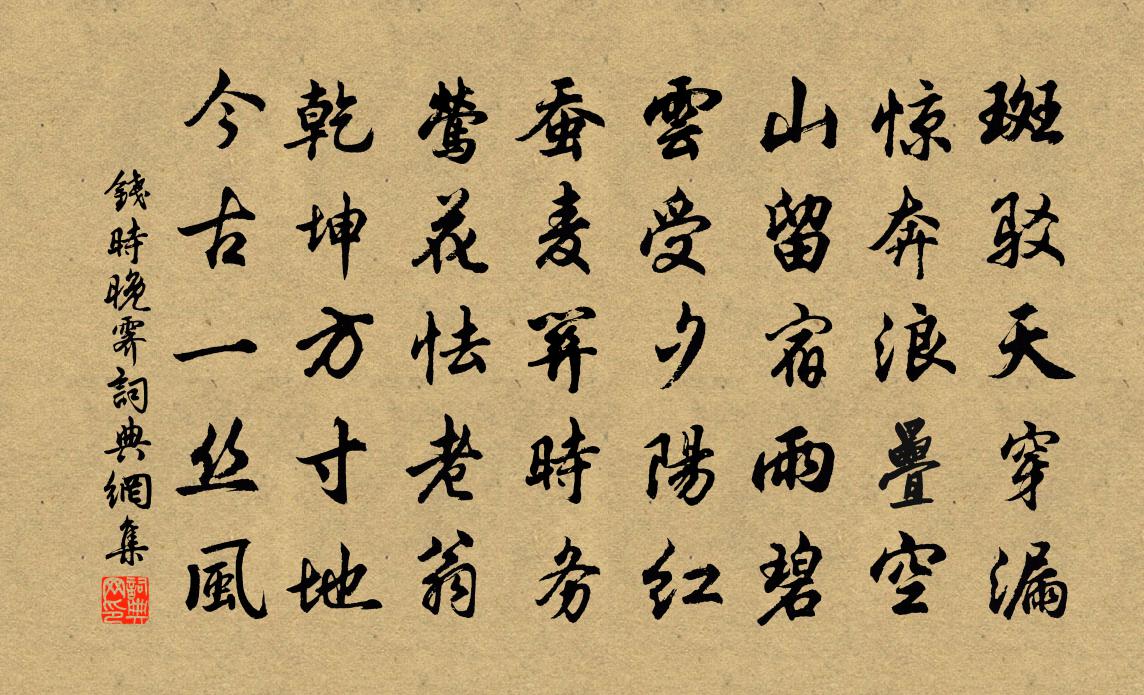 斑驳天穿漏
惊奔浪疊空
山留宿雨碧
雲受夕陽紅
蚕麦筭時务
鶯花怯老翁
乾坤方寸地
今古一丝風
錢時晚霽詞典網集
詞典网印